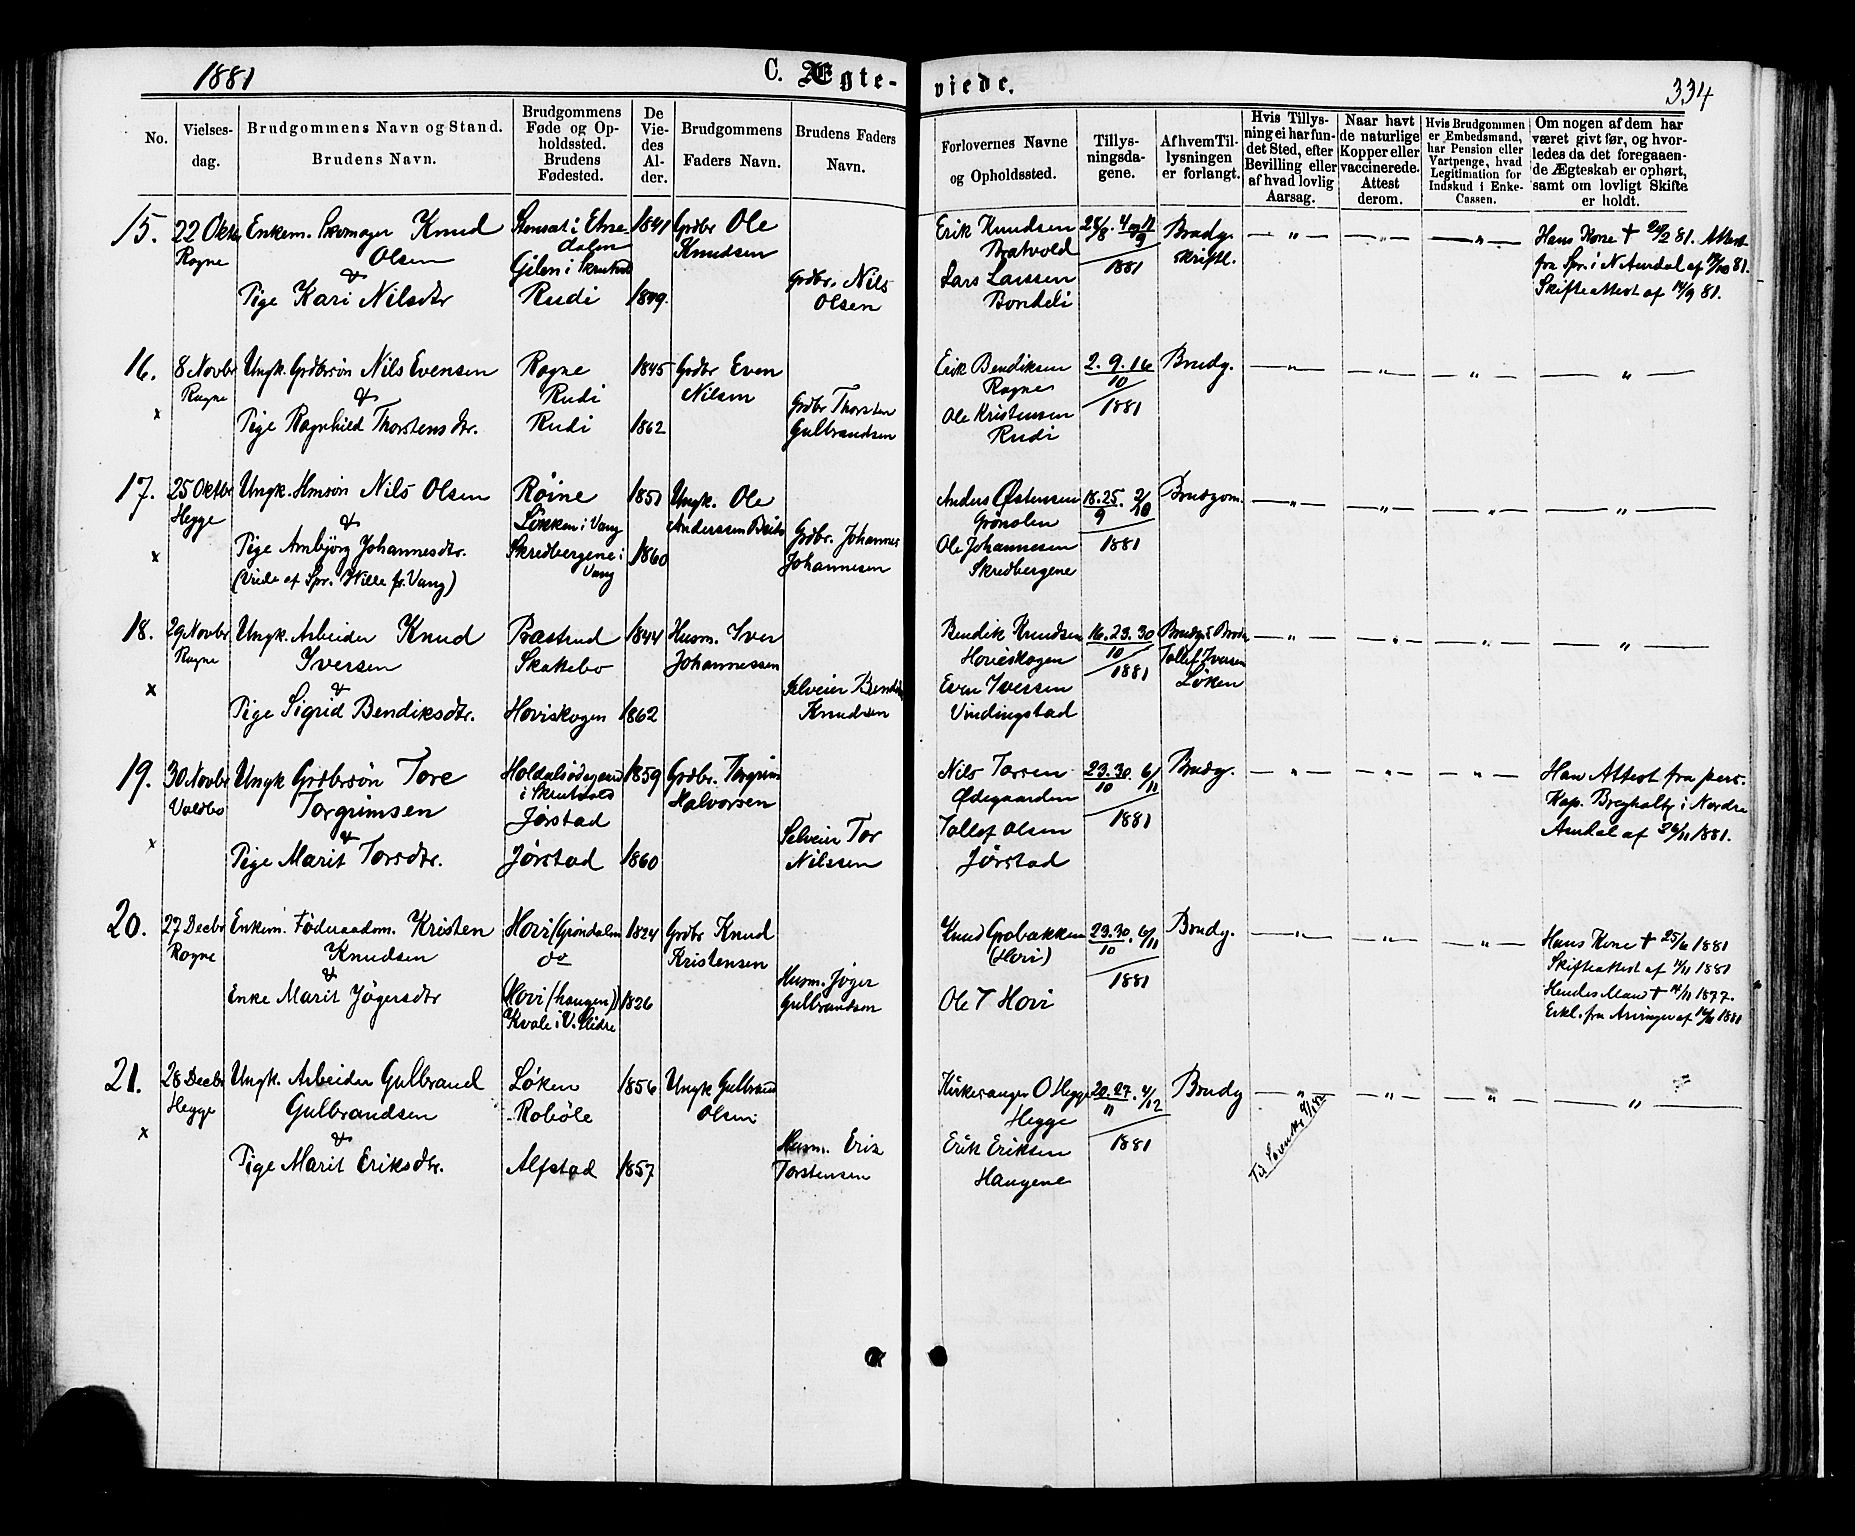 1881
C. Ægte-
viede.
334
No.
Vielses-
dag.
Brudgommens Navn og Stand.
Brudens Navn.
Brudgommens
Føde og Op-
holdssted.
Brudens
Fødested.
De
Vie-
des
Al-
der.
Brudgommens
Faders Navn.
Brudens Faders
Navn.
Forlovernes Navne
og Opholdssted.
Tillys-
ningsda-
gene.
Af hvem Til-
lysningen
er forlangt.
Hvis Tillys-
ning ei har fun-
det Sted, efter
Bevilling eller
af hvad lovlig
Aarsag.
Naar havt
de naturlige
Kopper eller
vaccinerede.
Attest
derom.
Hvis Brudgommen
er Embedsmand,
har Pension eller
Vartpenge, hvad
Legitimation for
Indskud i Enke-
Cassen.
Om nogen af dem har
været givt før, og hvor-
ledes da det foregaaen-
de Ægteskab er ophørt,
samt om lovligt Skifte
er holdt.
15.
22 Oktbr
Rogne
Enkem. Skomager Knud
Olsen
&
Pige Kari Nilsdtr
Stensæt i Etne-
dalen
Gilen i Skrutvold
Rudi
1841
1849.
Grdbr Ole
Knudsen
Grdbr. Nils
Olsen
Erik Knudsen
Bratvold
Lars Larssen
Bondeli
28/8. 4 og 11/9
1881
Brudg.
skriftl.
Hans Kone † 24/2 81. Attest
fra Spr. i N. Aurdal af 19/10 81.
Skifteattest af 14/9 81.
16.
x
8 Novbr
Rogne
Ungk. Grdbrsøn Nils Evensen
&
Pige Ragnhild Thorstensdtr.
Rogne
Rudi
Rudi
1845
1862
Grdbr Even
Nilsen
Grdbr Thorsten
Gulbrandsen
Erik Bendiksen
Rogne
Ole Kristensen
Rudi
2. 9. 16
10
1881
Brudg.
17.
x
25 Oktbr
Hegge
Ungk. Hmsøn Nils Olsen
&
Pige Ambjørg Johannesdtr.
(Viede af Spr. Wille pr. Vang)
Røine
Løkken i Vang
Skredbergene i
Vang
1851
1860
Ungk. Ole
Anderssen
Grdbr. Johannes
Johannesen
Anders Østensen
Grønolen
Ole Johannesen
Skredbergene
18. 25. 2/10
9
1881
Brudgom.
18.
x
29 Novbr
Rogne
Ungk. Arbeider Knud
Iversen
&
Pige Sigrid Bendiksdtr.
Bastrud
Skakebo
Hoviskogen
1844
1862
Husm. Iver
Johannessen
Selveier Bendik
Knudsen
Bendik Knudsen
Hoviskogen
Even Iversen
Vindingstad
16. 23. 30
10
1881
Brudg.s Broder
Tollef Iversen
Løken
19.
x
30 Novbr
Voldbo
Ungk Grdbrsøn Tore
Torgrimsen
&
Pige Marit Torsdtr.
Holdalsødegaard
i Skrutvold
Jørstad
Jørstad
1859
1860
Grdbr. Torgrim
Halvorsen
Selveier Tor
Nilssen
Nils Torsen
Ødegaarden
Tollef Olsen
Jørstad
23. 30. 6/11
10
1881
Brudg.
Han Attest fra pers.
Kap. Breghalts i Nordre
Aurdal af 26/11 1881.
20.
27 Decbr
Rogne
Enkem. Føderaadsm. Kristen
Knudsen
&
Enke Marit Jøgersdtr
Hovi (Grøndalen
do
Hovi (haugen)
Kvale i V. Slidre
1824
1826
Grdbr Knud
Kristensen
Husm. Jøger
Gulbrandson
Knud Grobakken
(Hovi)
Ole T Hovi
23. 30. 6/11
10
1881
Brudg.
Hans Kone † 25/6 1881
Skifteattest af 14/11 1881
Hendes Mand † 14/11 1877.
Erkl. fra Arvinger af 14/11 1881
21.
x
28 Decbr
Hegge
Ungk. Arbeider Gulbrand
Gulbrandsen
&
Pige Marit Eriksdtr.
Løken
Robøle
Alfstad
1856
1857
Ungk Gulbrand
Olsen
Husm. Erik
Torstensen
Kirkesanger O Hegge
Hegge
Erik Eriksen
Haugene
20. 27. 4/12
11
1881
Brudg